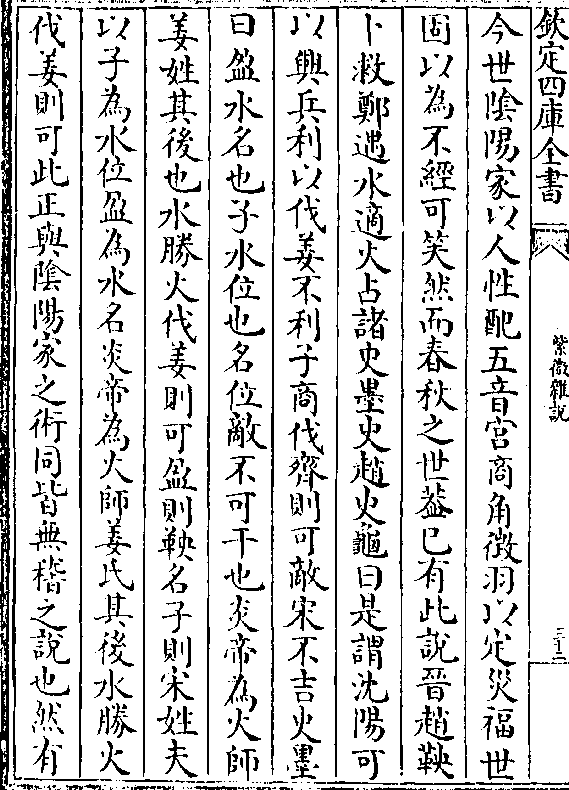 欽定四庫全書
紫微雜說
三十二
今世陰陽家以人性配五音宮商角徵羽以定災福世
固以為不經可笑然而春秋之世葢已有此說晉趙鞅
卜救鄭遇水適火占諸史墨史趙史龜曰是謂沈陽可
以興兵利以伐姜不利子商伐齊則可敵宋不吉史墨
曰盈水名也子水位也名位敵不可干也炎帝為火師
姜姓其後也水勝火伐姜則可盈則鞅名子則宋姓夫
以子為水位盈為水名炎帝為火師姜氏其後水勝火
伐姜則可此正與陰陽家之術同皆無稽之說也然有